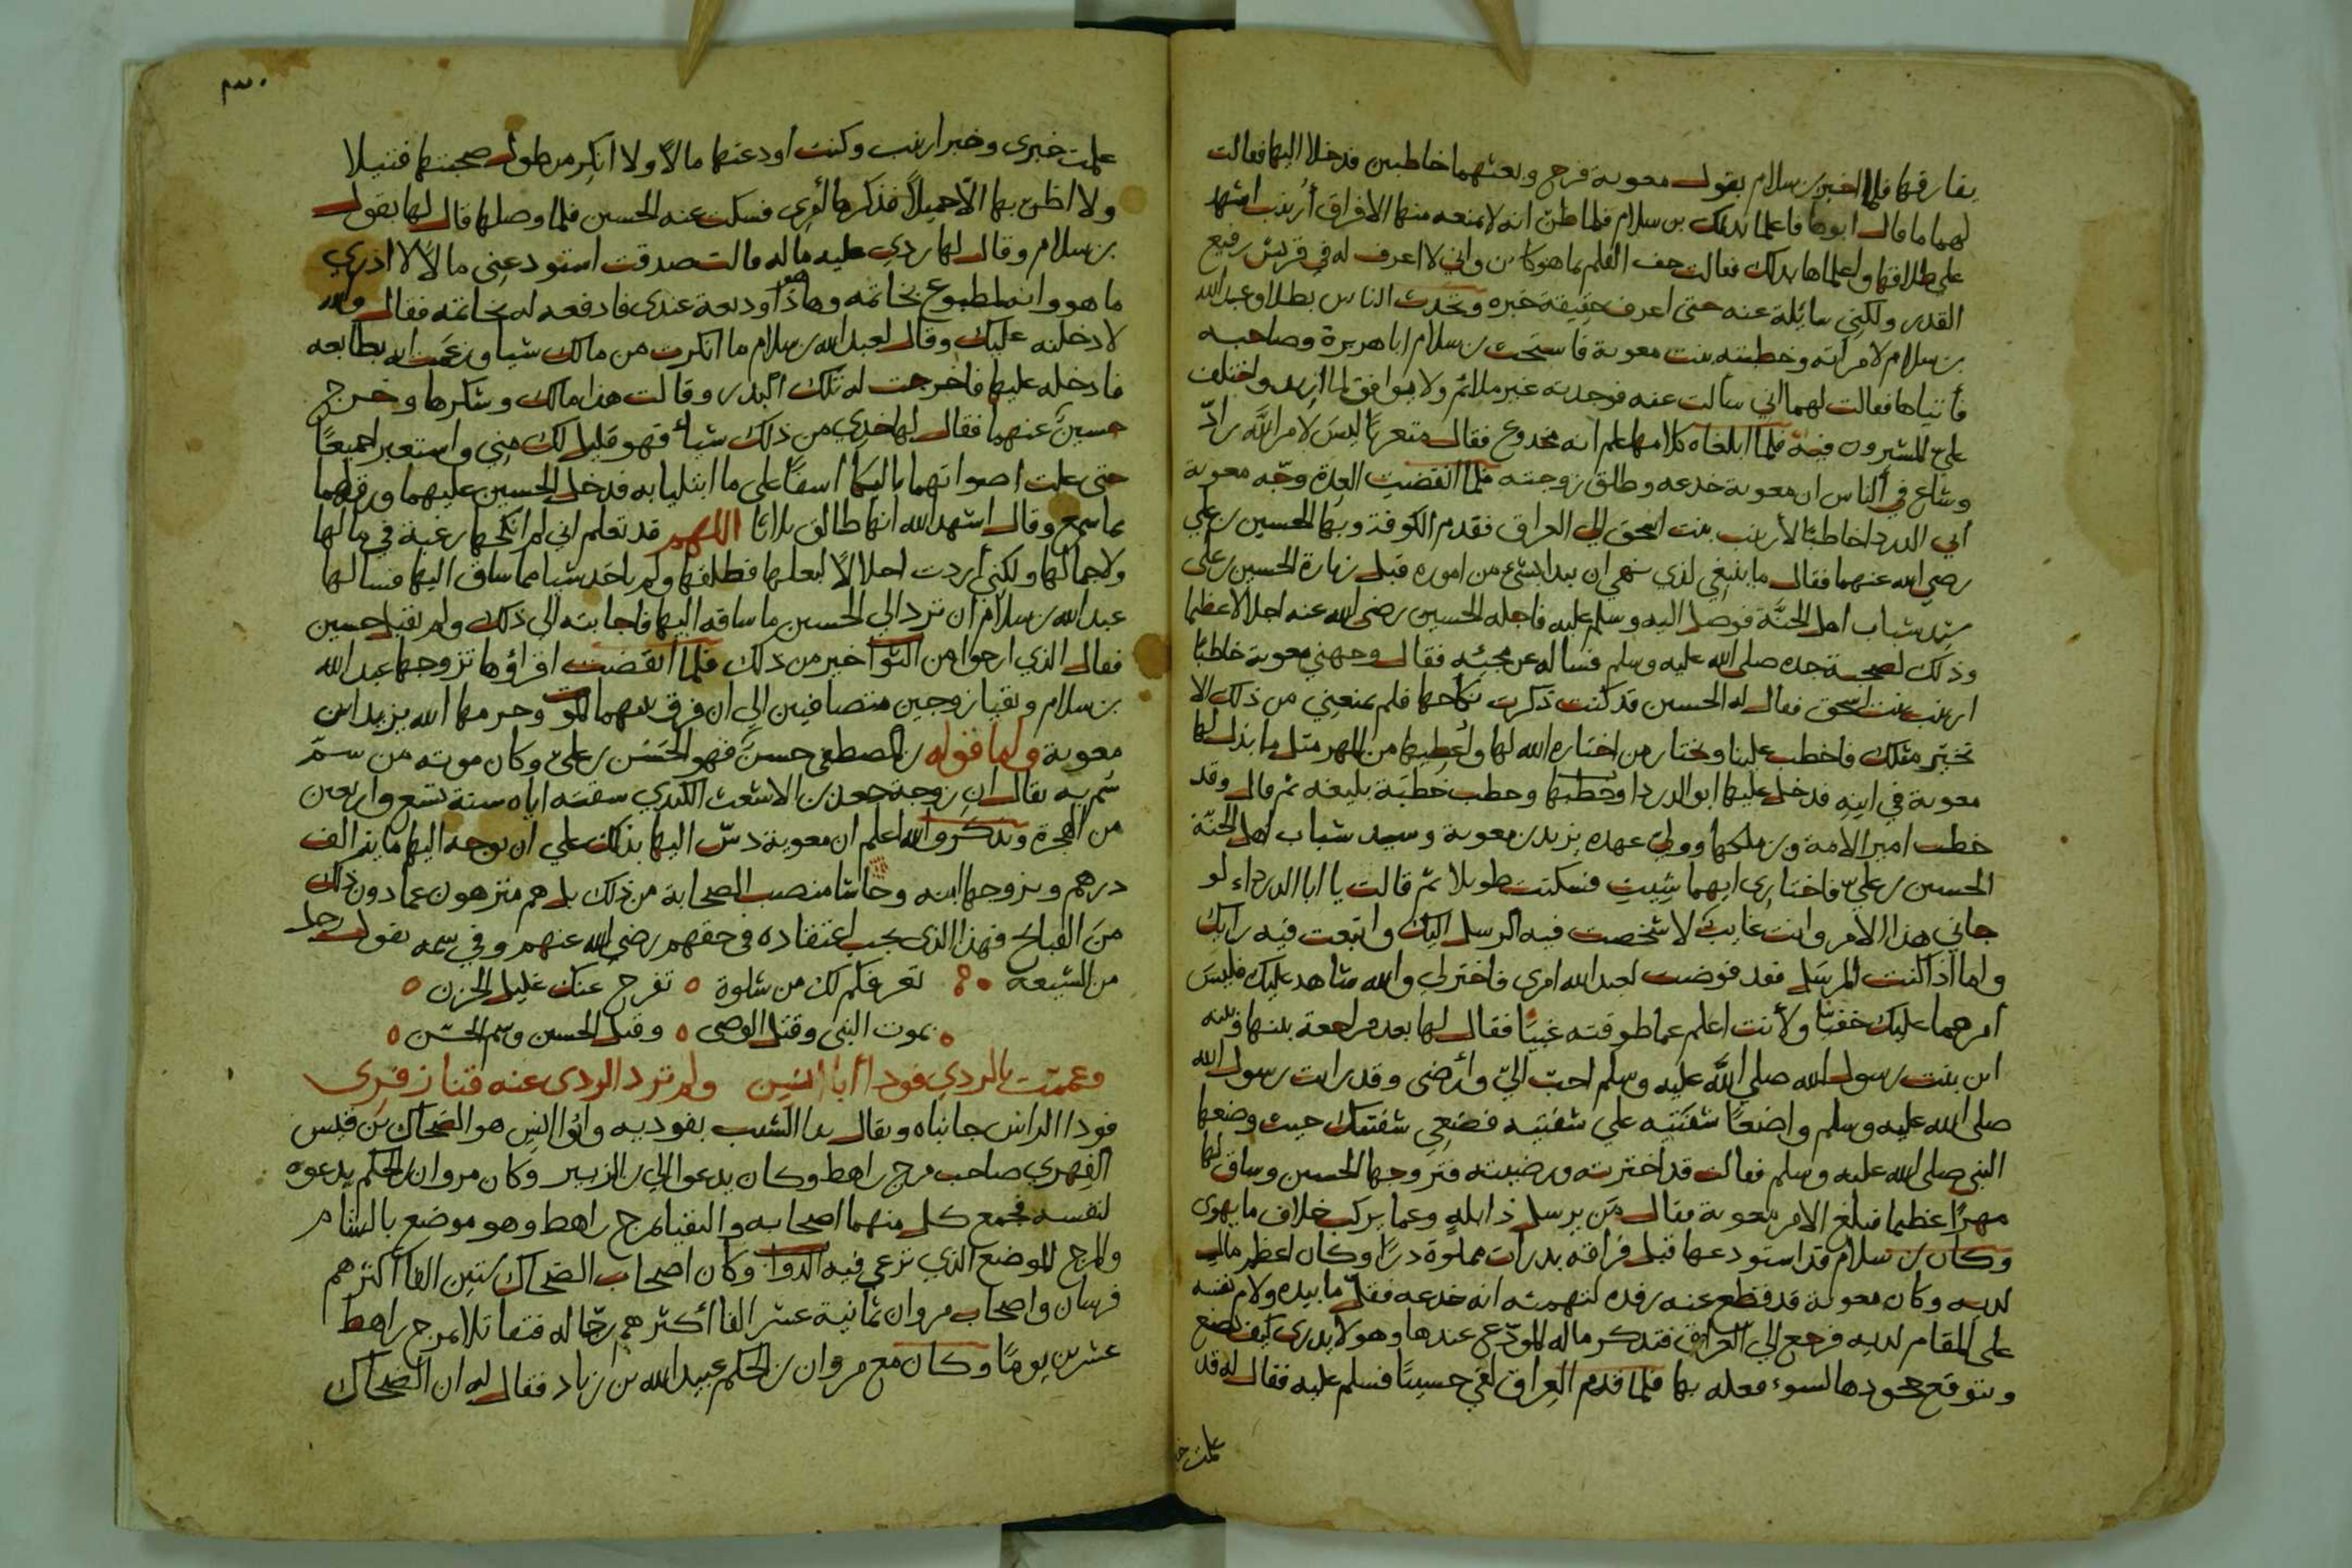 يفارقها فلما اخبر بن سلام بقول معوية فرح وبعثهما خاطبين فدخلا اليها فقالت
لهما ما قال ابوها فاعلما بذلك بن سلام فلما ظن انه لا يمنعه منها الا فراق أرينب اشهد
على طلاقها واعلماها بذلك فقالت جف القلم بما هو كائن واني لا اعرف له في قريش رفيع
القدر ولكني سائلة عنه حتى اعرف حقيقة خبره وتحدث الناس بطلاق عبد الله
بن سلام لامراته وخطبته بنت معوية فاستحث بن سلام ابا هريرة وصاحبه
فأتياها فقالت لهما اني سالت عنه فوجدته غير ملائم ولا يوافق لما اريد واختلف
علي المشيرون فيه فلما ابلغاه كلامها علم انه مخدوع فقال متعزيا ليس لامر الله رادّ
وشاع في الناس ان معوية خدعه وطلق زوجته فلما انقضت العدة وجّه معوية
أبي الدردا خاطبًا لأرينب بنت اسحق الي العراق فقدم الكوفة وبها الحسين بن علي
رضي الله عنهما فقال ما ينبغي لذي نهي ان يبدا بشئ من اموره قبل زيارة الحسين بن على
سيد شباب اهل الجنَّة فوصل اليه وسلم عليه فاجله الحسين رضي الله عنه اجلالا عظيما
وذلك لصحبة جده صلى الله عليه وسلم فساله عن مجيئه فقال وجهني معوية خاطبًا
ارينب بنت اسحق فقال له الحسين قد كنت ذكرت نكاحها فلم يمنعني من ذلك الا
تخيّر مثلك فاخطب علينا وتختار من اختاره الله لها وأعطيها من المهر مثل ما بذل لها
معوية في ابنه فدخل عليها ابو الدردا وخطبها وخطب خطبة بليغة ثم قال وقد
خطب امير الامة وبن ملكها وولي عهده يزيد بن معوية وسيد شباب اهل الجنّة
الحسين بن عليّ فاختاري ايهما شيت فسكتت طويلا ثم قالت يا ابا الدرداء لو
جاني هذا الامر وانت غايب لاشخصت فيه الرسل اليك واتبعت فيه رايك
واما اذا كنت المرسَل فقد فوضت لعبد الله امري فاختر لي والله شاهد عليك فليس
أمرهما عليك خفيّا ولأنت اعلم عما طوقته غبيًا فقال لها بعد مراجعة بينها وبينه
ابن بنت رسول الله صلي الله عليه وسلم احبّ اليّ وأرضى وقد رايت رسول الله
صلى الله عليه وسلم واضعًا شفتيه علي شفتيه فضعي شفتيك حيث وضعها
النبي صلى الله عليه وسلم فقالت قد اخترته ورضيته فتزوجها الحسين وساق لها
مهرًا عظيما فبلغ الامر معوية فقال مَن يرسل ذا بلهٍ وعما يركب خلاف ما يهوى
وكان بن سلام قد استودعها قبل فراقه بدرات مملوة درّا وكان اعظم ماله
لديه وكان معوية قد قطع عنه رفده لتهمته انه خدعه فقلّ ما بيده ولام نفسه
على المقام لديه فرجع الي العراق فتذكر ماله المودّع عندها وهو لا يدري كيف يصنع
ويتوقع جحودها لسوء فعله بها فلما قدم العراق لقي حسينًا فسلم عليه فقال له قد
علمت خـ
٣٠
علمت خبري وخبر ارينب وكنت اودعتها مالاً ولا انكر من طول صحبتها فتيلا
ولا اظن بها الّا جميلاً فذكرها أمري فسكت عنه الحسين فلما وصلها قال لها يقول
بن سلام وقال لها ردي عليه ماله قالت صدقت استودعني مالًا لا ادري
ما هو وانه لمطبوع بخاتمه وها هو ذا وديعة عندي فادفعه له بخاتمه فقال والله
لادخلنه عليك وقال لعبد الله بن سلام ما انكرت من مالك شيا وزعمت انه بطابعه
فادخله عليها فاخرجت له تلك البدر وقالت هذا مالك وشكرها وخرج
حسينٌ عنهما فقال لها خذي من ذلك شيأ فهو قليل لك مني واستعبرا جميعًا
حتى علت اصواتهما بالبكا اسفًا على ما ابتليا به فدخل الحسين عليهما ورق لهما
بما سمع وقال اشهد الله انها طالق ثلاثا اللهم قد تعلم اني لم انكحها رغبة في مالها
ولا جمالها ولكني أردت احلالًا لبعلها فطلقها ولم ياخذ شيا مما ساق اليها فسالها
عبد الله بن سلام ان ترد الي الحسين ما ساقه اليها فاجابته الي ذلك ولم يقبل حسين
فقال الذي ارجوا من الثوا خير من ذلك فلما انقضت اقراؤها تزوجها عبد الله
بن سلام وبقيا زوجين متصافيين الي ان فرق بينهما الموت وحرمها الله يزيد ابن
معوية واما قوله بن المصطفى حسنٌ فهو الحَسَن بن عليّ وكان موته من سمّ
سُم به يقال ان زوجة جعدة بن الاشعث الكندي سقته اياه سنة تسع واربعين
من الهجرة ويذكر والله اعلم ان معوية دسّ اليها بذلك علي ان يوجه اليها مائة الف
درهم ويزوجها ابنه وحاشا منصب الصحابة من ذلك بل هم منزهون عما دون ذلك
منَ القبايح فهذا الذي يجب اعتقاده في حقهم رضي الله عنهم وفي سمه يقول رجل
من الشيعه تعز فكم لك من سلوة تفرج عنك غليل الحزن
بموت النبي وقتل الوصي وقتل الحسين وسم الحسَن
وعممت بالردي فودا أبا انيس ولم ترد الردي عنه قنا زفر
فودا الراس جانباه ويقال بدا الشيب بفوديه وابُوا انيس هو الضحاك بن قيس
الفهري صاحب مرج راهط وكان يدعوا الي بن الزبير وكان مروان بن الحكم يدعوه
لنفسه فجمع كل منهما اصحابه والتقيا بمرج راهط وهو موضع بالشام
والمرج الموضع الذي ترعي فيه الدوابّ وكان اصحاب الضحاك ستين الفا اكثرهم
فرسان واصحاب مروان ثمانية عشر الفا أكثرهم رجّاله فتقاتلا بمرج راهط
عشرين يومًا وكان مع مروان بن الحكم عبيد الله بن زياد فقال له ان الضحاك